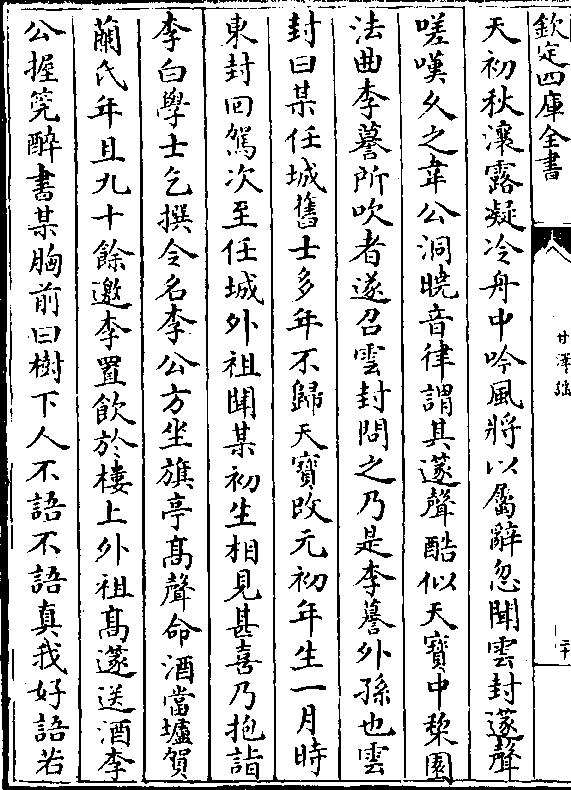 欽定四庫全書
甘澤謠
二十
天初秋瀼露凝冷舟中吟風將以屬辭忽聞雲封篴聲
嗟嘆久之韋公洞曉音律謂其篴聲酷似天寶中棃園
法曲李謩所吹者遂召雲封問之乃是李謩外孫也雲
封曰某任城舊士多年不歸天寶改元初年生一月時
東封回駕次至任城外祖聞某初生相見甚喜乃抱詣
李白學士乞撰令名李公方坐旗亭髙聲命酒當壚賀
蘭氏年且九十餘邀李置飲於樓上外祖髙篴送酒李
公握筦醉書某胸前曰樹下人不語不語真我好語若